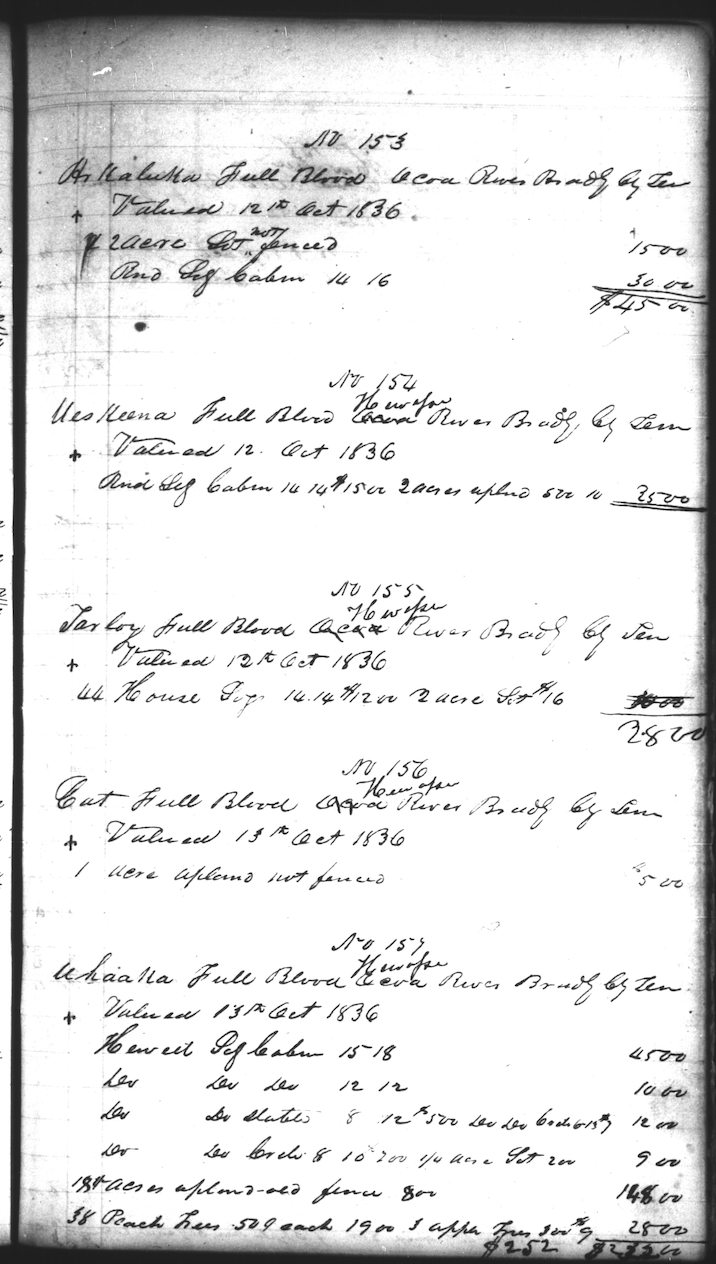 No 153
Full Blood Ocoa River Bradly Cty Ten
Valued 12th Oct 1836
2 acre Lot not fenced 15 00
Rnd Log Cabin 14 16 30 00
$45 00
No 154
Ueskeena Full Blood Ocoa Hewasse River Bradly Cty Tenn
Valued 12. Oct 1836
Rnd Log Cabin 14 14 $15 00 2 acres uplnd 500 10 25 00
No 155
Full Blood Ocoa Hewasse River Bradly Cty Ten
Valued 12th Oct 1836
House Logs 14.14 $12 00 2 acre Lot $16
28 00
No 156
Cat Full Blood Ocoa Hewasse River Bradly Cty Tenn
Valued 13th Oct 1836
1 acre upland not fenced $5 00
No 157
Full Blood Ocoa Hewasse River Bradly Cty Ten
Valued 13th Oct 1836
Hewed Log Cabin 15 18 45 00
Do Do Do 12 12 10 00
Do Do Stable 8 12 $500 Do Do 12 00
Do Do Crib 8 10 700 1/4 acre Lot 200 9 00
acres upland old fence 800 00
38 Peach Trees 50 each 19 00 3 apple Trees 300 $9 28 00
$252